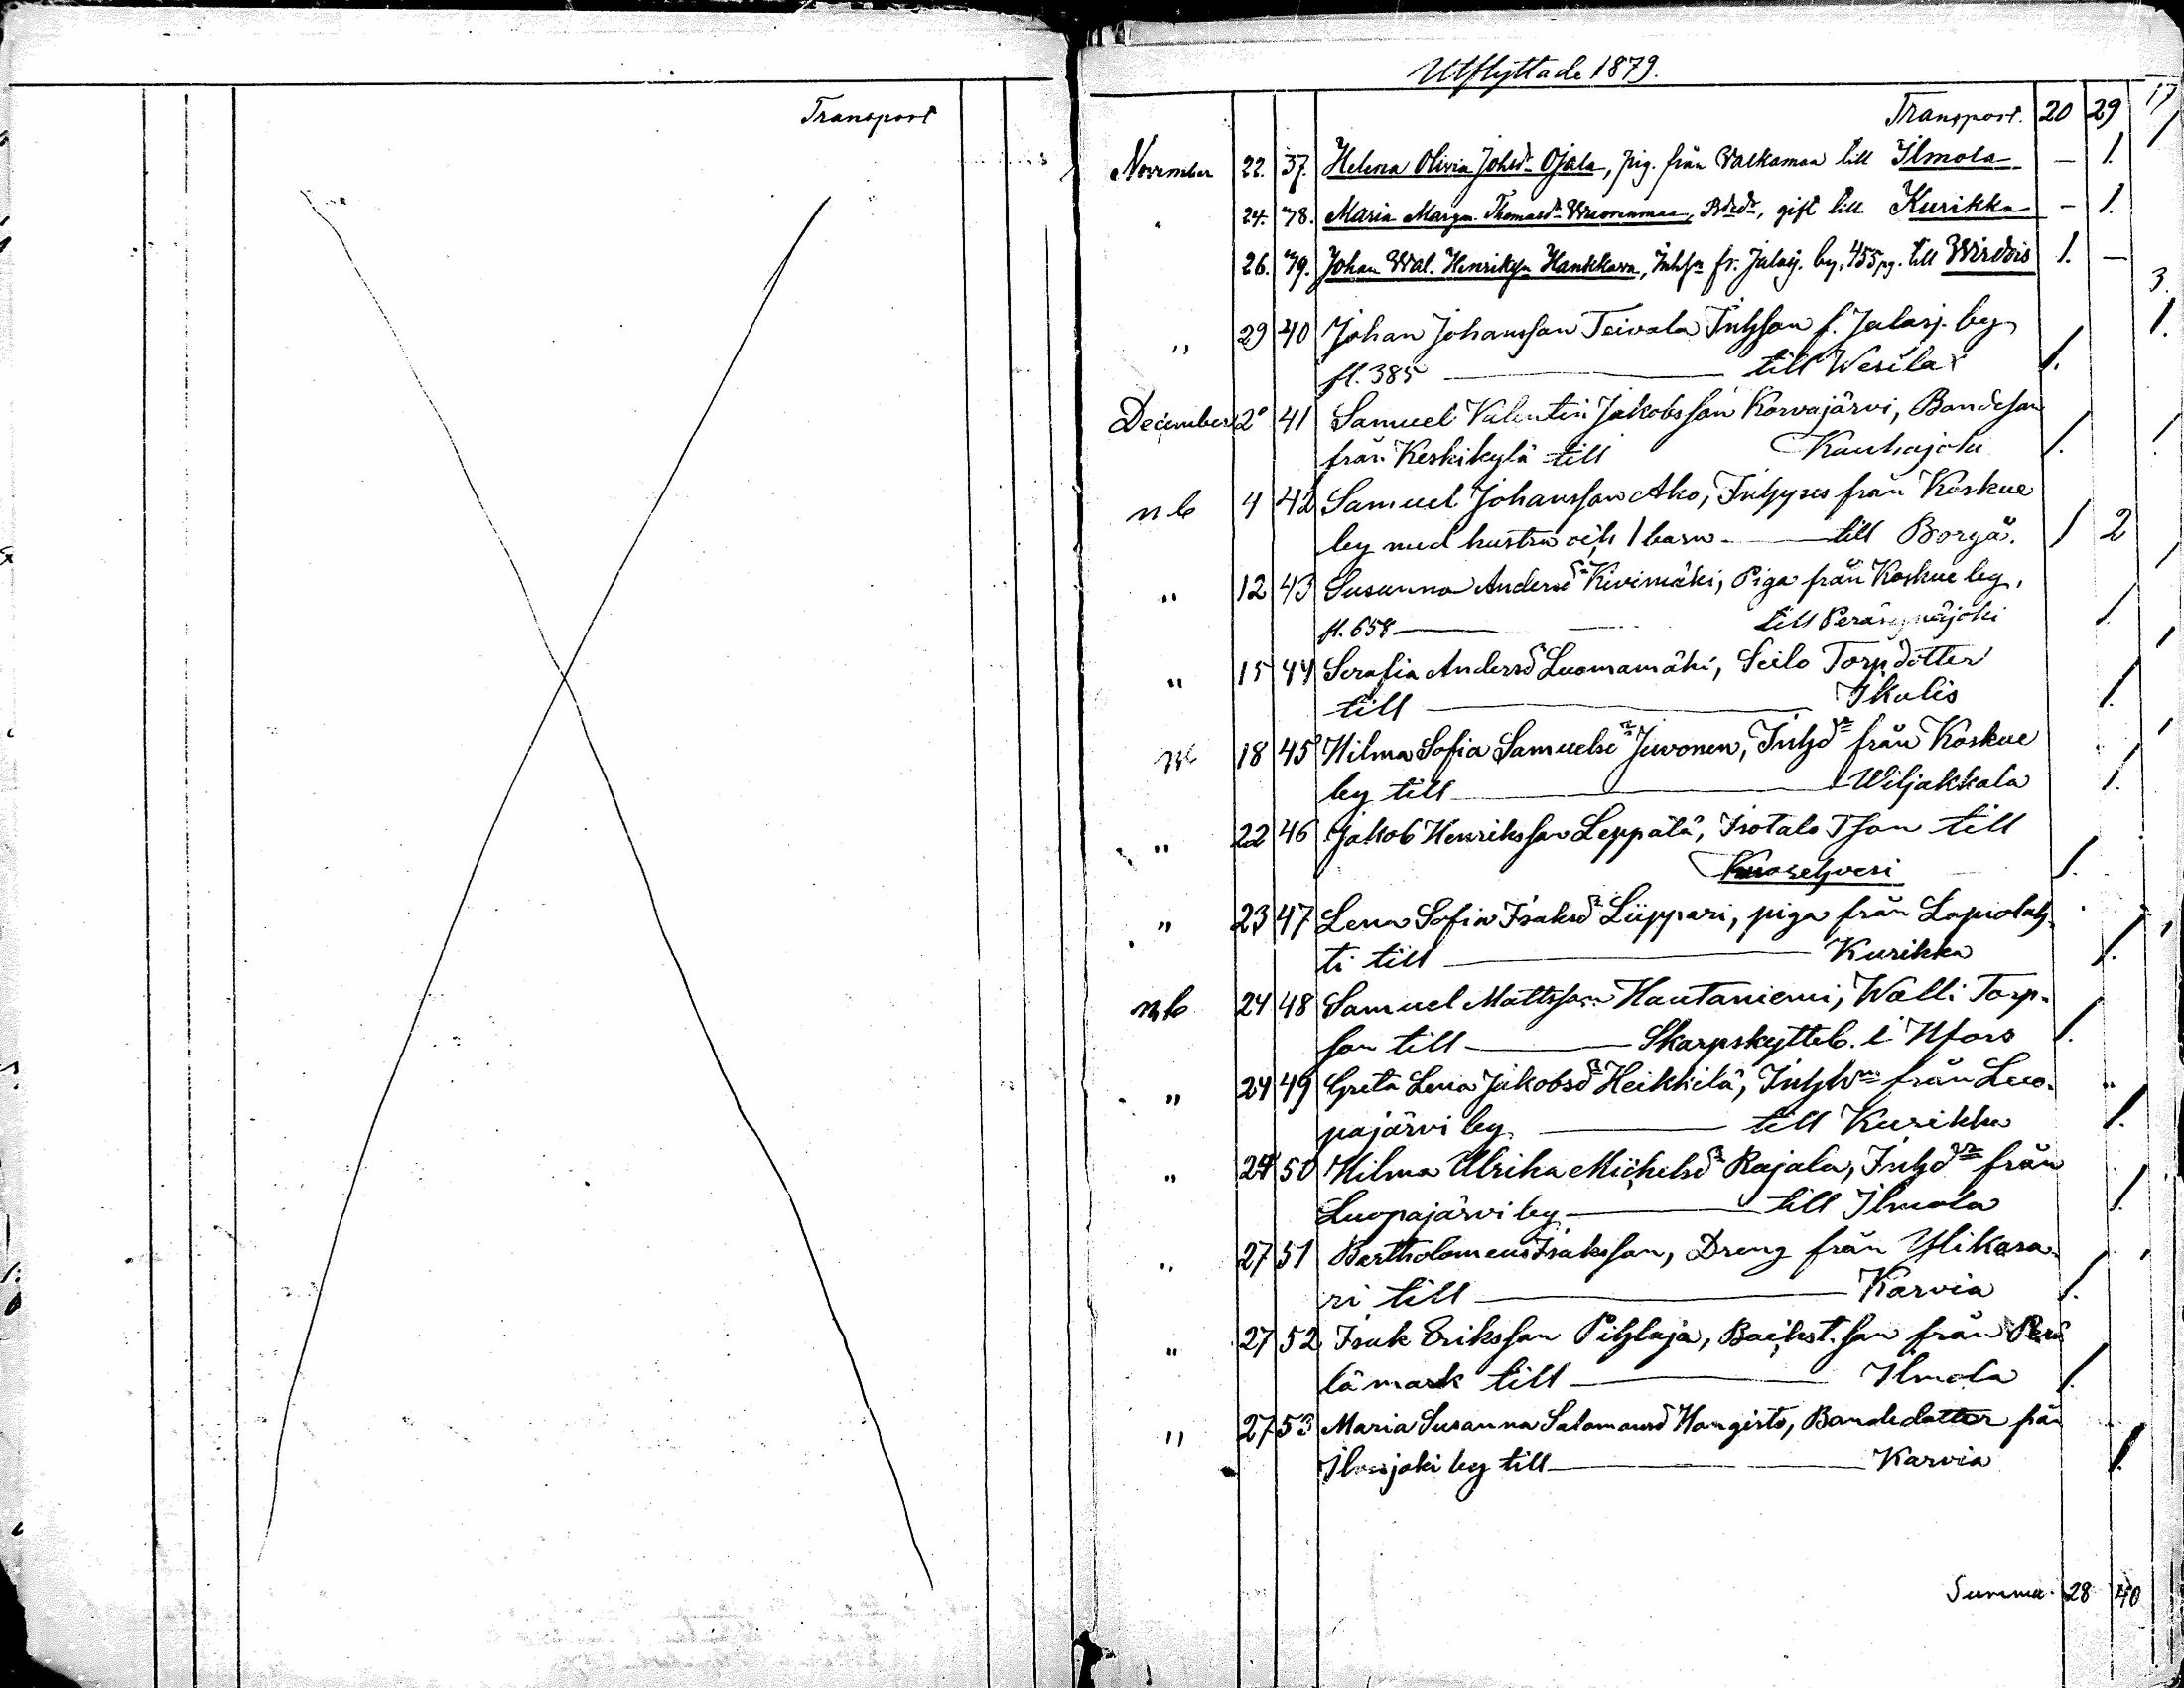 Transport
Utflyttade 1879.
Transport. 20 29 17
November 22. 37. Helena Olivia Johsdr Ojala, pig. från Valkamaa till Ilmola — 1.
" 24. 78. Maria Margar. Thomasdr, Bdedr, gift till Kurikka — 1.
26. 79. Johan Wal. Henriksn Hankkava, Inhsn fr. Jalasj. by, 455 pg. till Wirdois 1. —
3.
" 29 40 Johan Johansson Teivala Inhson f. Jalasj. by 1.
fl. 385 — till Wesilax 1.
December 2 41 Samuel Valentin Jakobsson Korvajärvi, Bondeson
från Keskikylä till Kauhajoki 1.
4 42 Samuel Johansson Ako, Inhyses från Koskue
by med hustru och 1 barn — till Borgå. 1 2
" 12 43 Susanna Andersdr Kivimäki, Piga från Koskue by,
fl. 658 — till Peräseinäjoki 1.
" 15 44 Serafia Andersdr Luomamäki, Seilo Torpdotter
till — Ikalis 1.
18 45 Hilma Sofia Samuelsdr Juvonen, Inhdr från Koskue
by till — Wiljakkala 1.
" 22 46 Jakob Henriksson Leppälä, Isotalo Tson till
Kuorehvesi 1.
" 23 47 Lena Sofia Isaksdr Lüppari, piga från Lapiolah-
ti till — Kurikka 1.
24 48 Samuel Mattsson Hautaniemi, Walli Torp-
son till — Skarpskytteb. i Hfors 1.
" 24 49 Greta Lena Jakobsdr Heikkilä, Inhhu från Luo-
pajärvi by — till Kurikka 1.
" 24 50 Hilma Ulrika Michelsdr Rajala, Inhdr från
Luopajärvi by — till Ilmola 1.
" 27 51 Bartholomeus Isaksson, Dreng från Ylikasa-
ri till — Karvia 1.
" 27 52 Isak Eriksson Pihlaja, Backst. son från
lä mark till — Ilmola 1.
" 27 53 Maria Susanna Salomonsd Hangisto, Bondedotter från
Ilvesjoki by till — Karvia 1.
Summa. 28 40